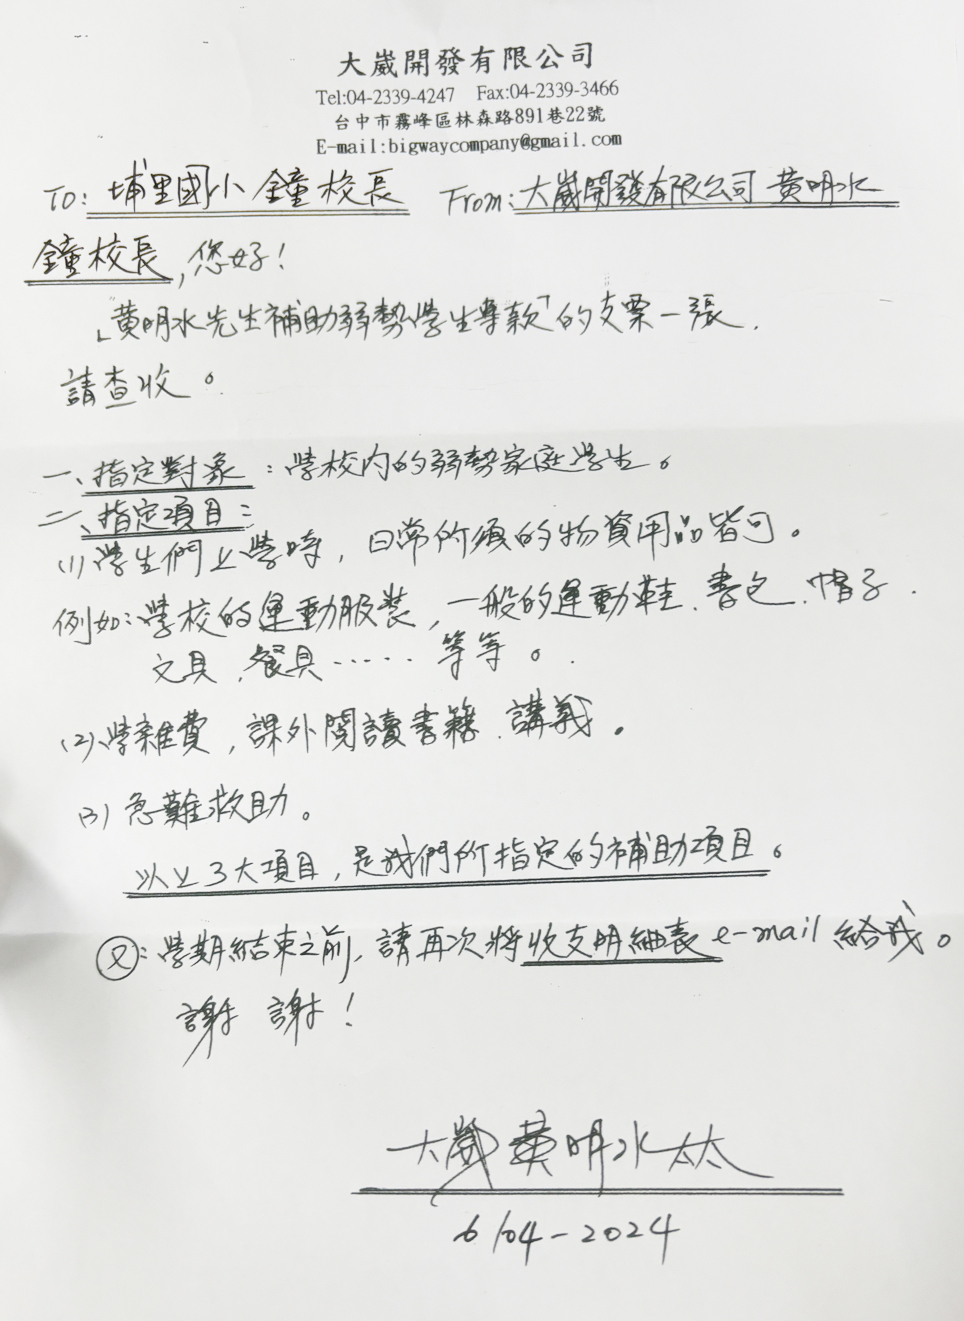 大崴開發有限公司
Tel:04-2339-4247 Fax:04-2339-3466
台中市霧峰區林森路891巷22號
E-mail:bigwaycompany@gmail.com
To: 埔里國小 鐘校長 From: 大崴開發有限公司 黃明水
鐘校長,您好!
「黃明水先生補助弱勢學生專款」的支票一張.
請查收。
一、指定對象:學校內的弱勢家庭學生。
二、指定項目:
(1)學生們上學時,日常所須的物資用品皆可。
例如:學校的運動服裝,一般的運動鞋、書包、帽子.
文具、餐具……等等。
(2)學雜費,課外閱讀書籍、講義。
(3)急難救助。
以上3大項目,是我們所指定的補助項目。
又:學期結束之前,請再次將收支明細表e-mail給我。
謝謝!
大崴 黃明水 太太
6/04-2024